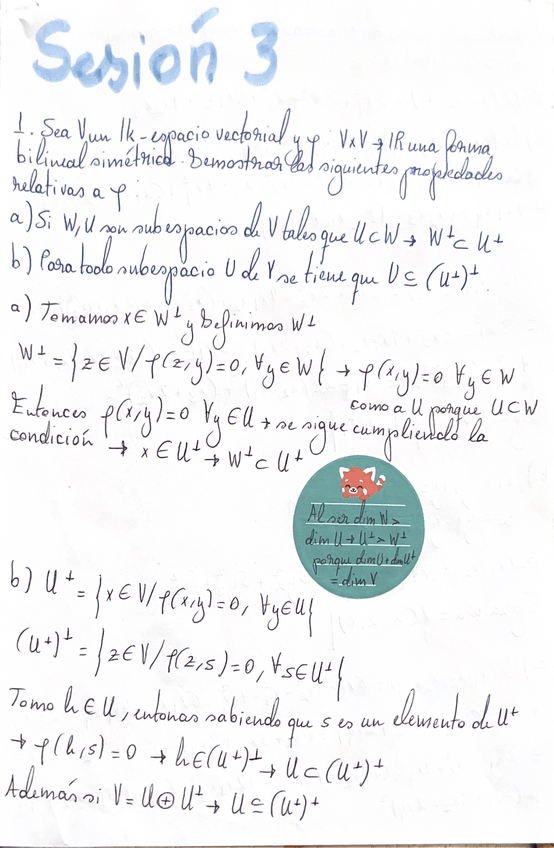 Sesión 3
1. Sea V un lk-espacio vectorial y φ: V×V → IR una forma
bilineal simétrica. Demostrar las siguientes propiedades
relativas a φ:
a) Si W, U son subespacios de V tales que U⊂W → W⊥⊂ U⊥
b) Para todo subespacio U de V se tiene que U ⊆ (U⊥)⊥.
a) Tomamos x∈ W⊥ y definimos W⊥
W⊥ = {z∈ V/ φ(z,y)=0, ∀y∈W} → φ(x,y)=0 ∀y∈W
como a U porque U⊂W
Entonces φ(x,y)=0 ∀y∈U → se sigue cumpliendo la
condición → x∈U⊥ → W⊥⊂ U⊥
Al ser dim W>
dim U → U⊥ > W⊥
porque dim U + dim U⊥
= dim V
b) U⊥ = {x∈V/ φ(x,y)=0, ∀y∈U}
(U⊥)⊥ = {z∈V/ φ(z,s)=0, ∀s∈U⊥}
Tomo h∈U, entonces sabiendo que s es un elemento de U⊥
→ φ(h,s)=0 → h∈(U⊥)⊥ → U⊂(U⊥)⊥
Además si V= U⊕U⊥ → U⊆(U⊥)⊥